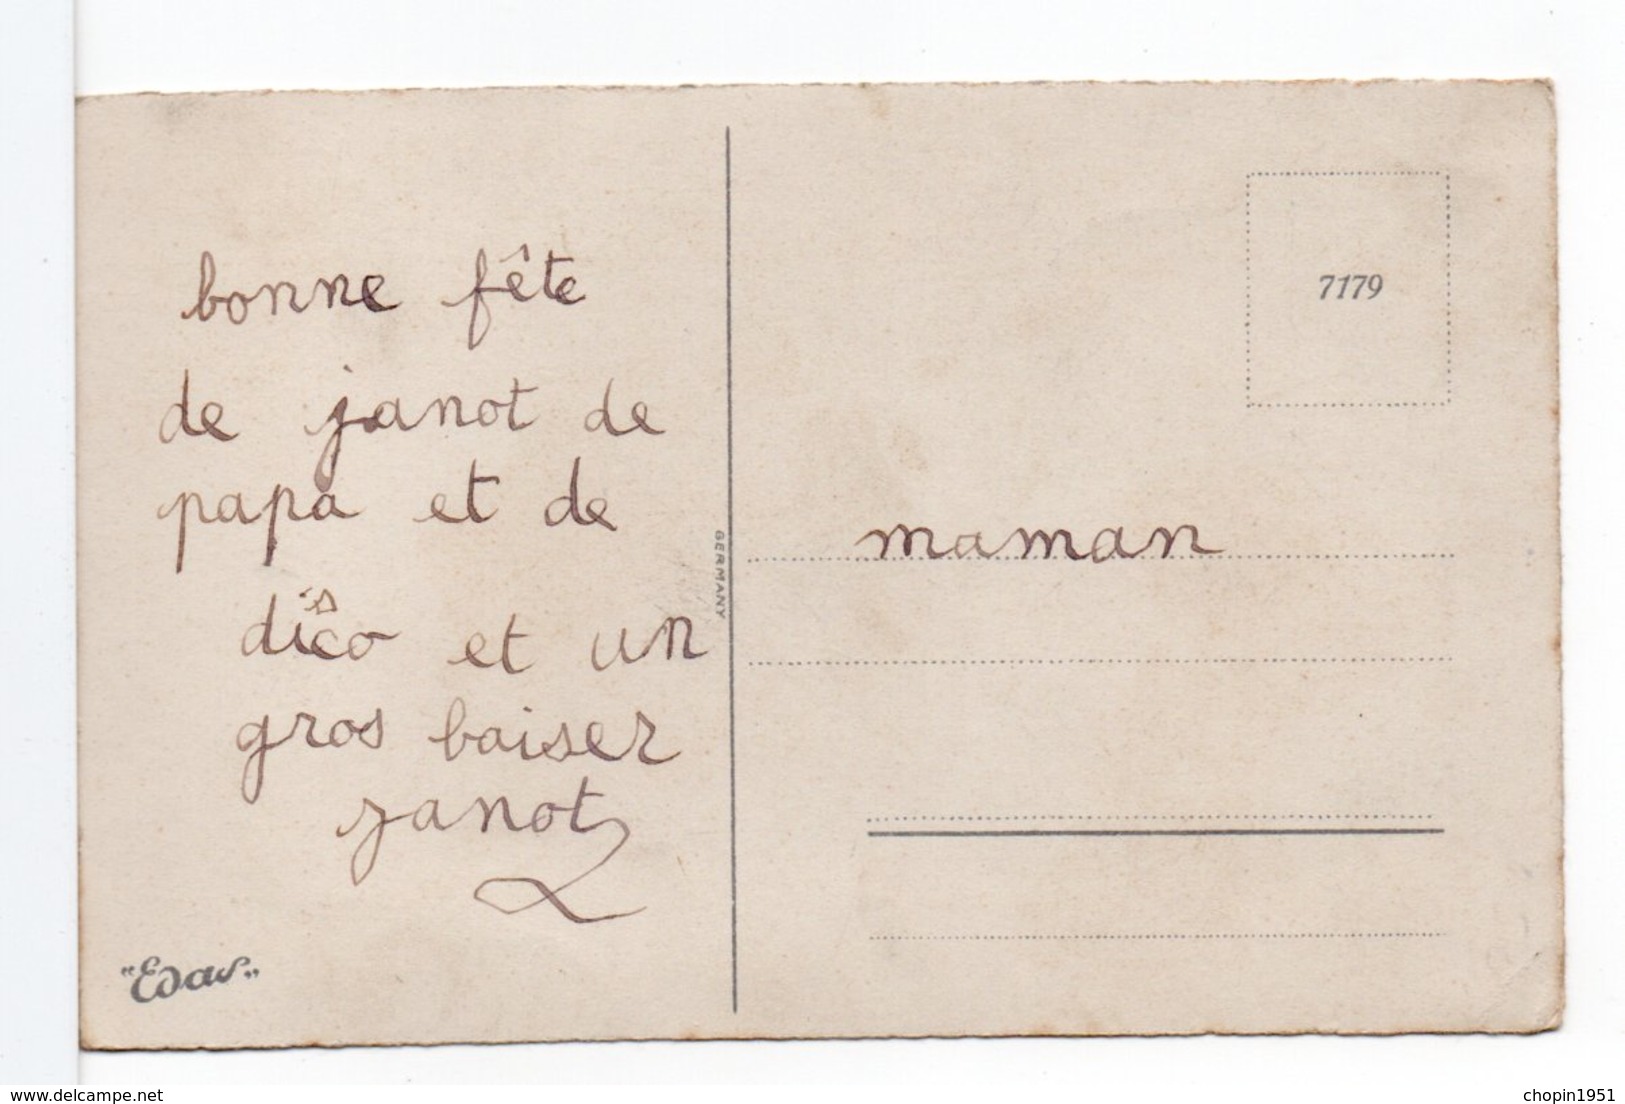 bonne fête
de janot de
papa et de
dîco et un
gros baiser
janot
"Edas"
GERMANY
7179
maman
www.delcampe.net
chopin1951